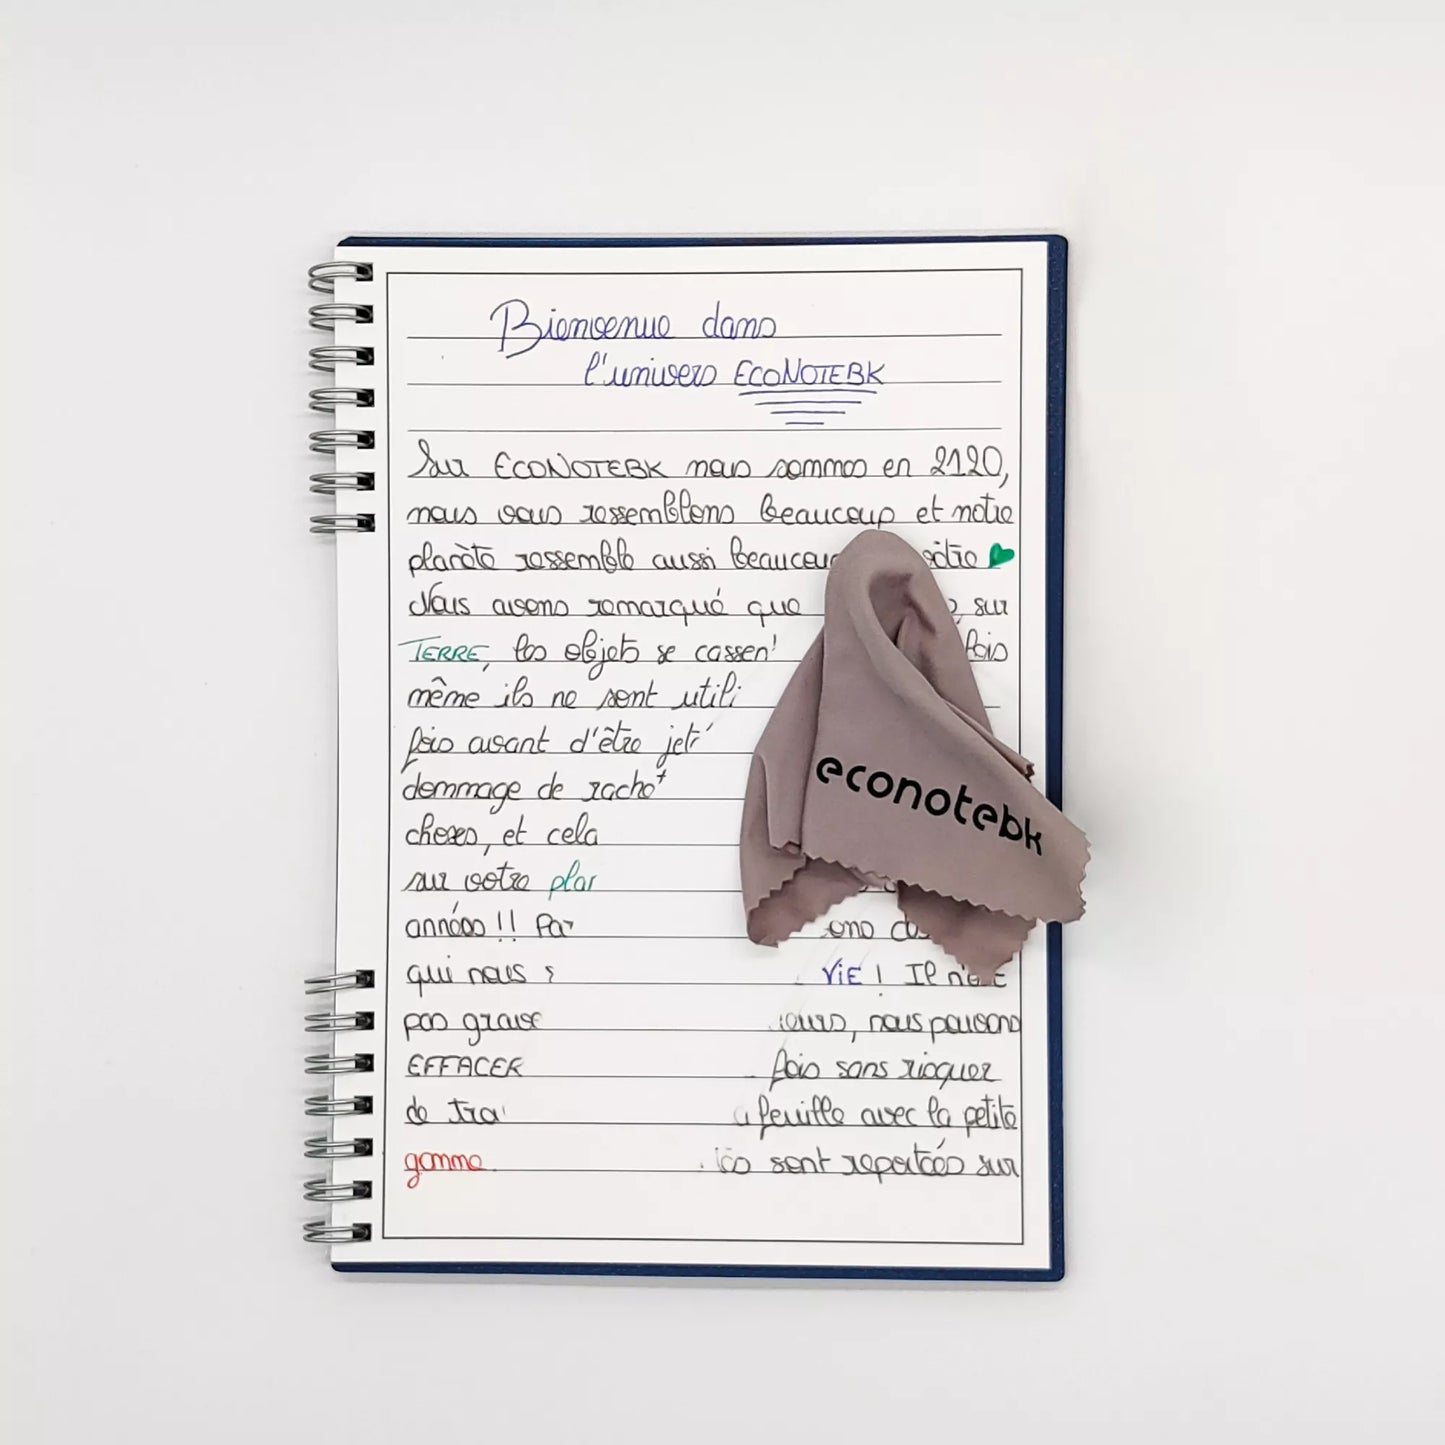 Bienvenue dans
l'univers ECONOTEBK
Sur ECONOTEBK nous sommes en 2120,
nous vous ressemblons beaucoup et notre
planète ressemble aussi beaucoup vôtre
Nous avons remarqué que , sur
TERRE, les objets se cassent fois
même ils ne sont utili
fois avant d'être jet
dommage de rachet
choses, et cela
sur votre plan
années !! Par
qui nous VIE ! Il n'est
pas grave nous pouvons
EFFACER fois sans risquer
de feuille avec la petite
gomme sont reportées sur
econotebk